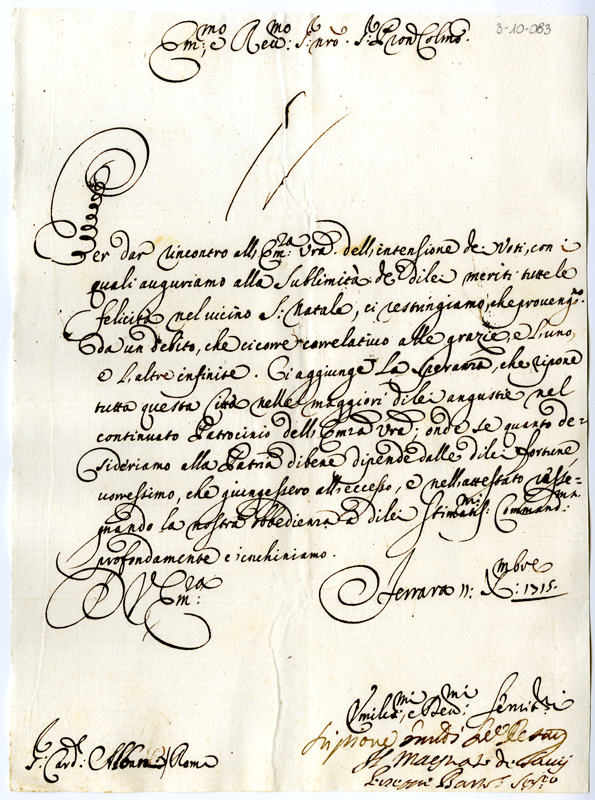 3-10-083
Em:mo e Reu:mo S:r nro. S:r Pron Colmo.
Per dar rincontro all' Em:za Vra. dell'intensione de Voti, con i
quali auguriamo alla Sublimità de di lei meriti tutte le
felicità nel vicino S: Natale, ci restringiamo, che proveng.o
da un debito, che ci corre correlativo alle grazie, e l'uno,
e l'altre infinite. Ci aggiunge La Speranza, che ripone
tutta questa Città nelle maggiori di lei angustie nel
continuato Patrocinio dell' Emza Vra; onde se quanto de=
sideriamo alla Patria di bene dipende dalle di lei fortune,
vorressimo, che giungessero all'eccesso, e nell'attestato
gnando la nostra obbedienza a di lei stimatis:mi Command:
profondamente c'inchiniamo.
D V Em:za
Ferrara 11: Xmbre: 1715.
Vmilis:mi, e Deu:mi Seruit:ri
Magnat
S:r Card: Albani Roma
Giuseppe